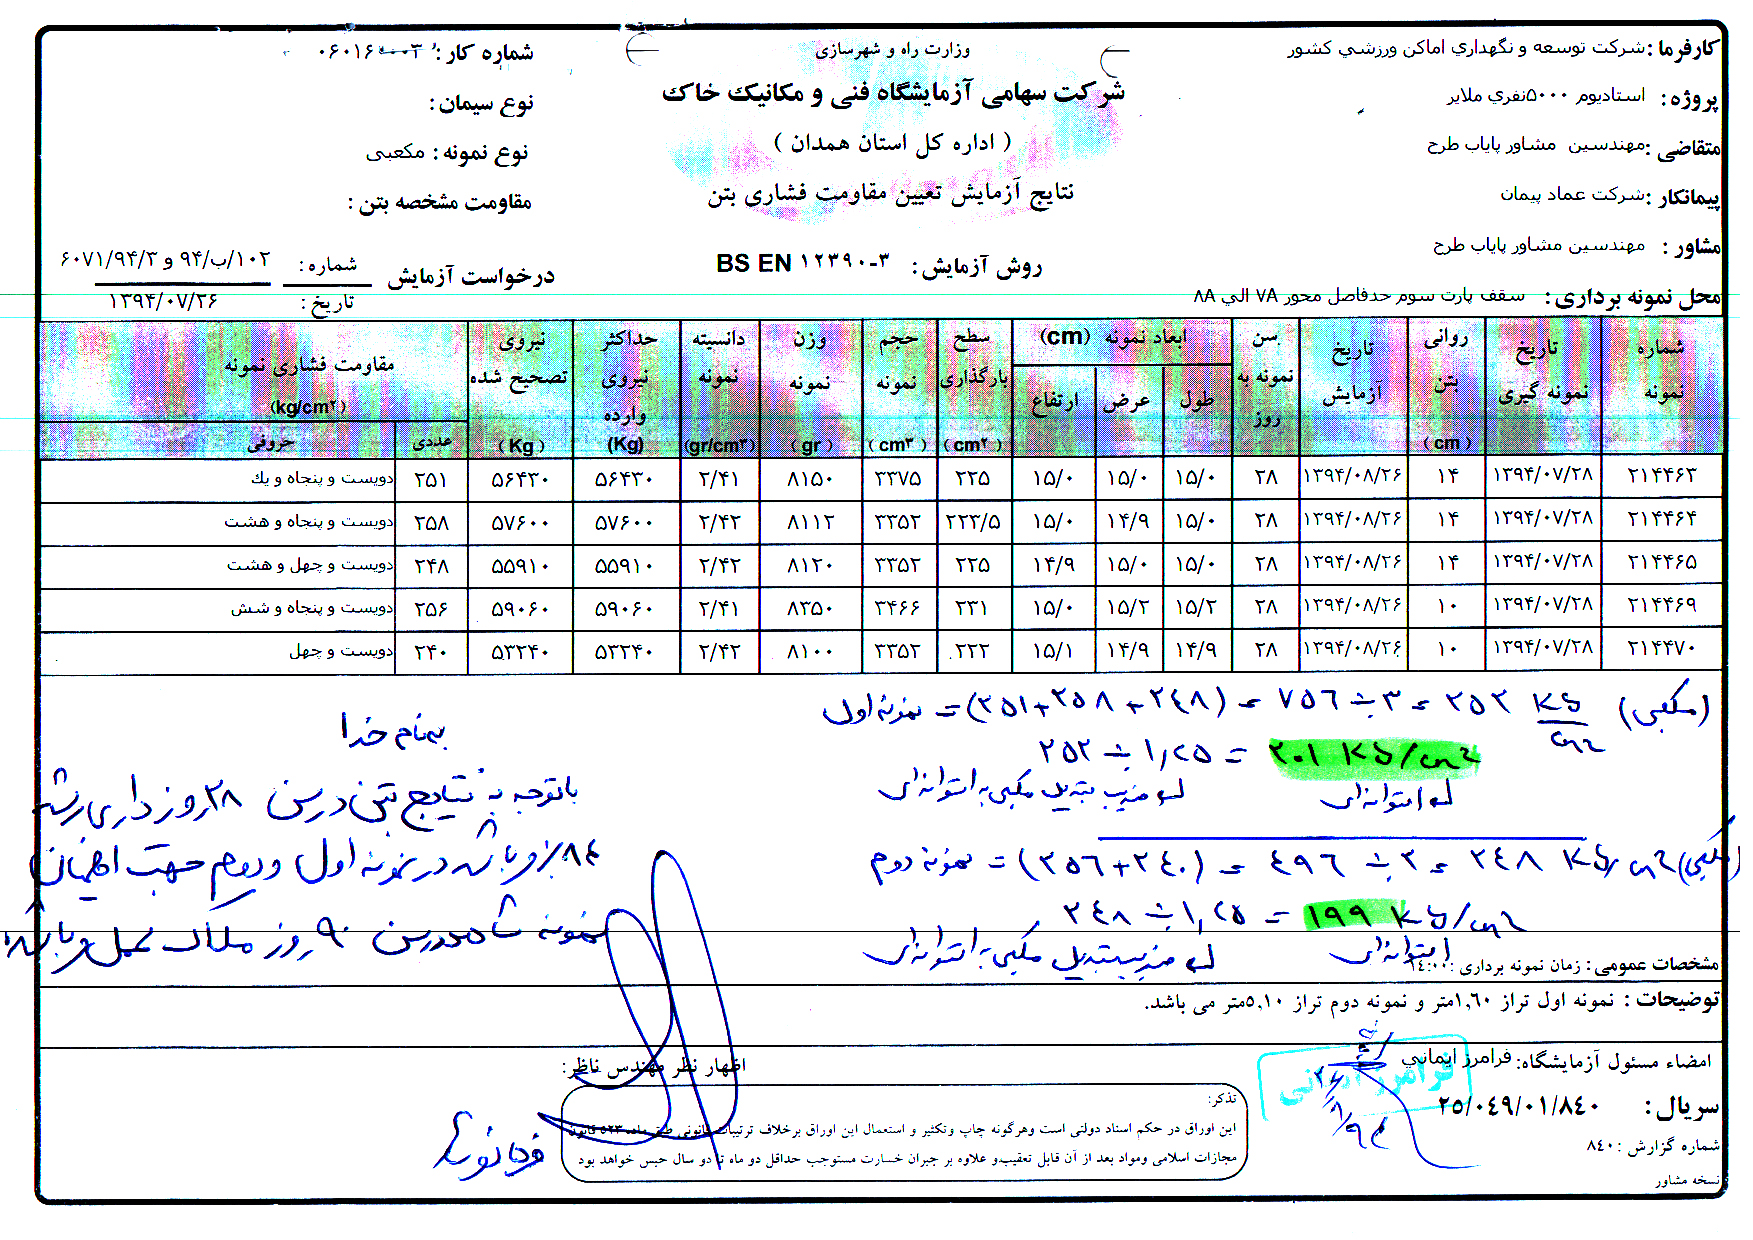 کارفرما : شرکت توسعه و نگهداري اماکن ورزشي کشور
پروژه : استادیوم ۵۰۰۰نفري ملایر
متقاضی : مهندسین مشاور پایاب طرح
پیمانکار : شرکت عماد پیمان
مشاور : مهندسین مشاور پایاب طرح
محل نمونه برداری : سقف پارت سوم حدفاصل محور ۷A الي ۸A
وزارت راه و شهرسازی
شرکت سهامی آزمایشگاه فنی و مکانیک خاک
( اداره کل استان همدان )
نتایج آزمایش تعیین مقاومت فشاری بتن
روش آزمایش : BS EN ۱۲۳۹۰-۳
شماره کار : ۰۶۰۱۶۰۰۰۳
نوع سیمان :
نوع نمونه : مکعبی
مقاومت مشخصه بتن :
درخواست آزمایش
شماره : ۱۰۲/ب/۹۴ و ۶۰۷۱/۹۴/۳
تاریخ : ۱۳۹۴/۰۷/۲۶
شماره نمونه | تاریخ نمونه گیری | روانی بتن (cm) | تاریخ آزمایش | سن نمونه به روز | ابعاد نمونه (cm) طول عرض ارتفاع | سطح بارگذاری (cm۲) | حجم نمونه (cm۳) | وزن نمونه (gr) | دانسیته نمونه (gr/cm۳) | حداکثر نیروی وارده (Kg) | نیروی تصحیح شده (Kg) | مقاومت فشاری نمونه (kg/cm۲) عددی حروفی
۲۱۴۴۶۳ ۱۳۹۴/۰۷/۲۸ ۱۴ ۱۳۹۴/۰۸/۲۶ ۲۸ ۱۵/۰ ۱۵/۰ ۱۵/۰ ۲۲۵ ۳۳۷۵ ۸۱۵۰ ۲/۴۱ ۵۶۴۳۰ ۵۶۴۳۰ ۲۵۱ دویست و پنجاه و یك
۲۱۴۴۶۴ ۱۳۹۴/۰۷/۲۸ ۱۴ ۱۳۹۴/۰۸/۲۶ ۲۸ ۱۵/۰ ۱۴/۹ ۱۵/۰ ۲۲۳/۵ ۳۳۵۲ ۸۱۱۲ ۲/۴۲ ۵۷۶۰۰ ۵۷۶۰۰ ۲۵۸ دویست و پنجاه و هشت
۲۱۴۴۶۵ ۱۳۹۴/۰۷/۲۸ ۱۴ ۱۳۹۴/۰۸/۲۶ ۲۸ ۱۵/۰ ۱۵/۰ ۱۴/۹ ۲۲۵ ۳۳۵۲ ۸۱۲۰ ۲/۴۲ ۵۵۹۱۰ ۵۵۹۱۰ ۲۴۸ دویست و چهل و هشت
۲۱۴۴۶۹ ۱۳۹۴/۰۷/۲۸ ۱۰ ۱۳۹۴/۰۸/۲۶ ۲۸ ۱۵/۲ ۱۵/۲ ۱۵/۰ ۲۳۱ ۳۴۶۶ ۸۳۵۰ ۲/۴۱ ۵۹۰۶۰ ۵۹۰۶۰ ۲۵۶ دویست و پنجاه و شش
۲۱۴۴۷۰ ۱۳۹۴/۰۷/۲۸ ۱۰ ۱۳۹۴/۰۸/۲۶ ۲۸ ۱۴/۹ ۱۴/۹ ۱۵/۱ ۲۲۲ ۳۳۵۲ ۸۱۰۰ ۲/۴۲ ۵۳۲۴۰ ۵۳۲۴۰ ۲۴۰ دویست و چهل
نمونه اول = (۲۵۱+۲۵۸+۲۴۸) = ۷۵۶ ÷ ۳ = ۲۵۲ kg/cm۲ (مکعبی)
۲۵۲ ÷ ۱,۲۵ = ۲۰۱ kg/cm۲
ضریب تبدیل مکعبی به استوانه‌ای
استوانه‌ای
نمونه دوم = (۲۵۶+۲۴۰) = ۴۹۶ ÷ ۲ = ۲۴۸ kg/cm۲ (مکعبی)
۲۴۸ ÷ ۱,۲۵ = ۱۹۹ kg/cm۲
ضریب تبدیل مکعبی به استوانه‌ای
استوانه‌ای
بنام خدا
باتوجه به نتایج بتن در سن ۲۸ روز دارای رشد
۸۴٪ می باشد در نمونه اول و دوم جهت اطمینان
نمونه شاهد در سن ۹۰ روز ملاک عمل می باشد
مشخصات عمومی : زمان نمونه برداری : ۱۴:۰۰
توضیحات : نمونه اول تراز ۱,۶۰متر و نمونه دوم تراز ۵,۱۰متر می باشد.
امضاء مسئول آزمایشگاه: فرامرز ایماني
فرامرز ایمانی
سریال : ۲۵/۰۴۹/۰۱/۸۴۰
شماره گزارش : ۸۴۰
نسخه مشاور
اظهار نظر مهندس ناظر:
تذکر:
این اوراق در حکم اسناد دولتی است وهرگونه چاپ وتکثیر و استعمال این اوراق برخلاف ترتیبات قانونی طبق ماده ۵۲۳ قانون
مجازات اسلامی ومواد بعد از آن قابل تعقیب و علاوه بر جبران خسارت مستوجب حداقل دو ماه تا دو سال حبس خواهد بود